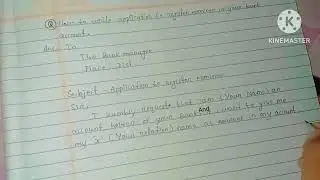 Q How to write application to register nominee in your bank
account.
Ans To
The Bank manager
Place, Dist
Subject - Application to register nominee
Sir,
I humbly request that I am (Your name) an
account holder of your bank. And I want to give me
my 'x' (Your relation) name as nominee in my account
KINEMASTER